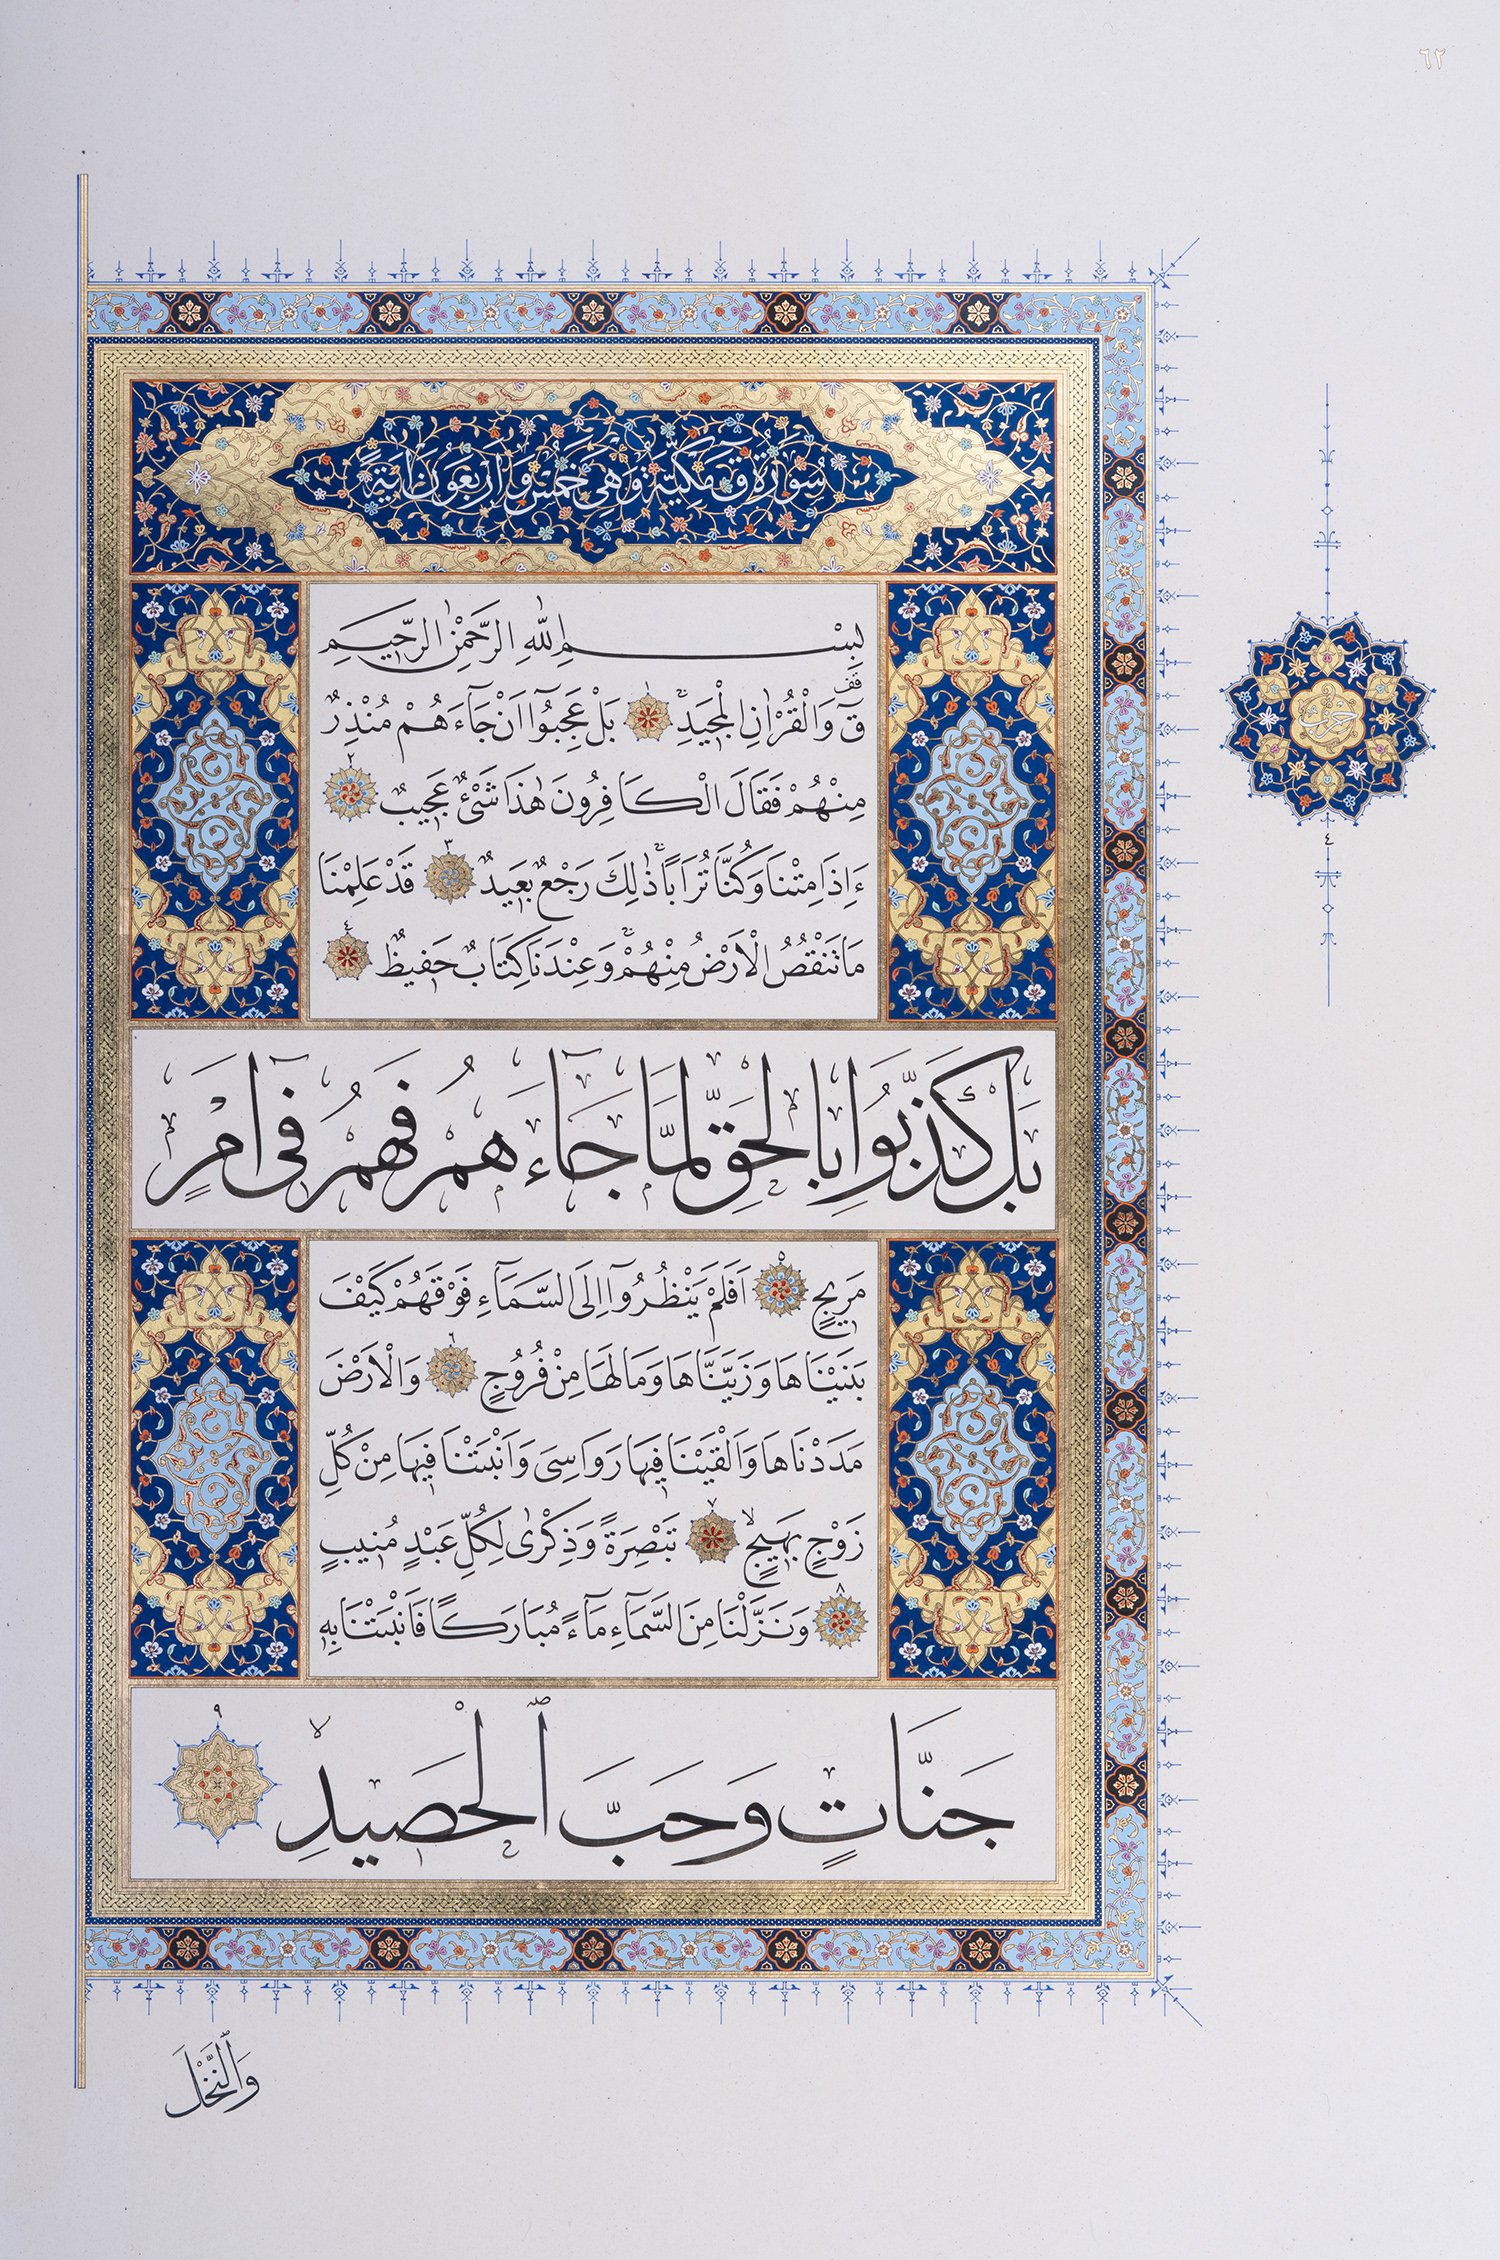 ٦٢
سُورَةُ قٓ مَكِّيَّةٌ وَهِيَ خَمْسٌ وَاَرْبَعُونَ اٰيَةً
بِسْمِ اللّٰهِ الرَّحْمٰنِ الرَّحِيمِ
قٓ وَالْقُرْاٰنِ الْمَجِيدِ ۚ ١ بَلْ عَجِبُٓوا اَنْ جَٓاءَهُمْ مُنْذِرٌ
قف
مِنْهُمْ فَقَالَ الْكَافِرُونَ هٰذَا شَيْءٌ عَجِيبٌ ٢
ءَاِذَا مِتْنَا وَكُنَّا تُرَابًا ۚ ذٰلِكَ رَجْعٌ بَعِيدٌ ٣ قَدْ عَلِمْنَا
مَا تَنْقُصُ الْاَرْضُ مِنْهُمْ ۚ وَعِنْدَنَا كِتَابٌ حَفِيظٌ ٤
بَلْ كَذَّبُوا بِالْحَقِّ لَمَّا جَٓاءَهُمْ فَهُمْ فِٓى اَمْرٍ
مَرِيجٍ ٥ اَفَلَمْ يَنْظُرُٓوا اِلَى السَّمَٓاءِ فَوْقَهُمْ كَيْفَ
بَنَيْنَاهَا وَزَيَّنَّاهَا وَمَا لَهَا مِنْ فُرُوجٍ ٦ وَالْاَرْضَ
مَدَدْنَاهَا وَاَلْقَيْنَا فِيهَا رَوَاسِىَ وَاَنْبَتْنَا فِيهَا مِنْ كُلِّ
زَوْجٍ بَهِيجٍ ۙ ٧ تَبْصِرَةً وَذِكْرٰى لِكُلِّ عَبْدٍ مُنِيبٍ
٨ وَنَزَّلْنَا مِنَ السَّمَٓاءِ مَٓاءً مُبَارَكًا فَاَنْبَتْنَا بِهِ
جَنَّاتٍ وَحَبَّ ٱلْحَصِيدِ ۙ ٩
وَٱلنَّخْلَ
حزب
٤